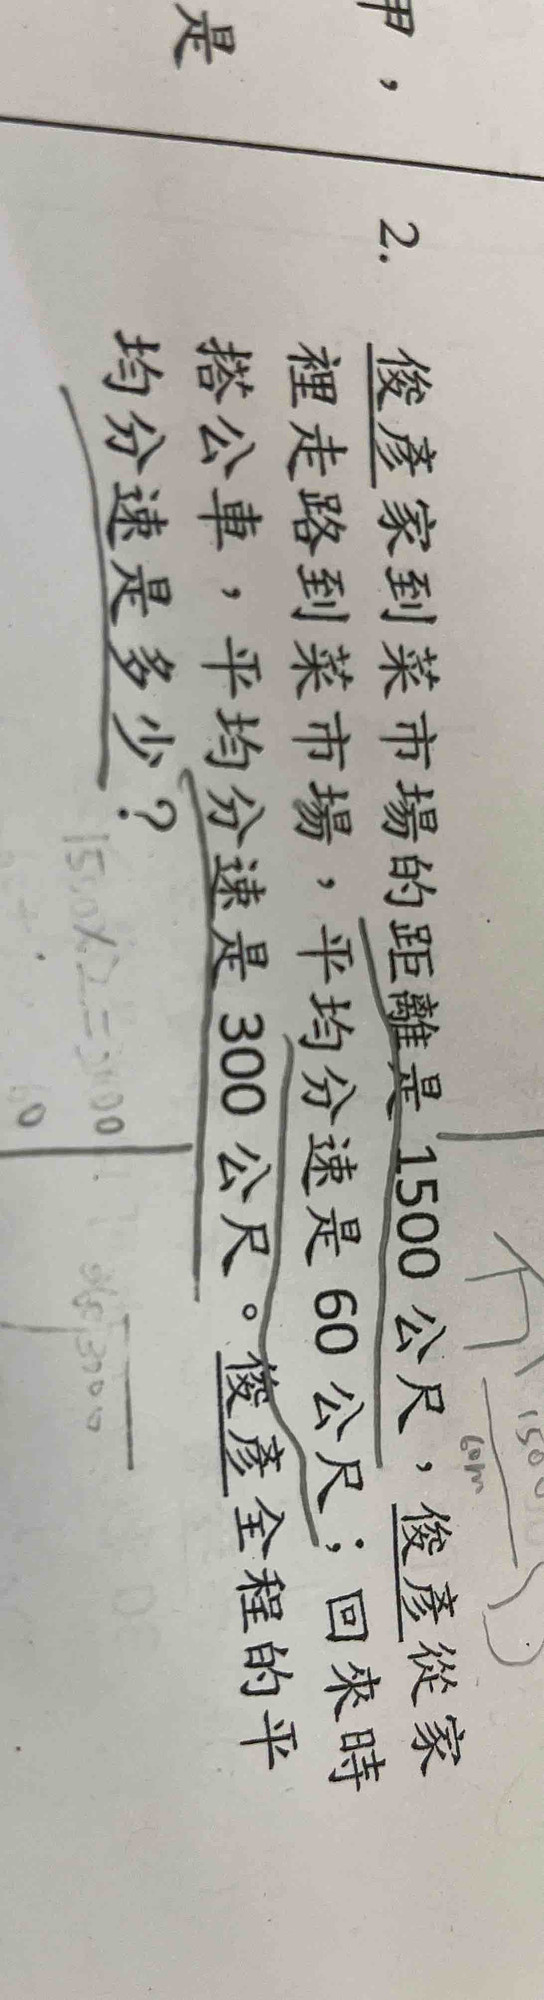 甲，
是
2. 俊彥家到菜市場的距離是 1500 公尺，俊彥從家
裡走路到菜市場，平均分速是 60 公尺；回來時
搭公車，平均分速是 300 公尺。俊彥全程的平
均分速是多少？
1500
60m
1500×2=3000